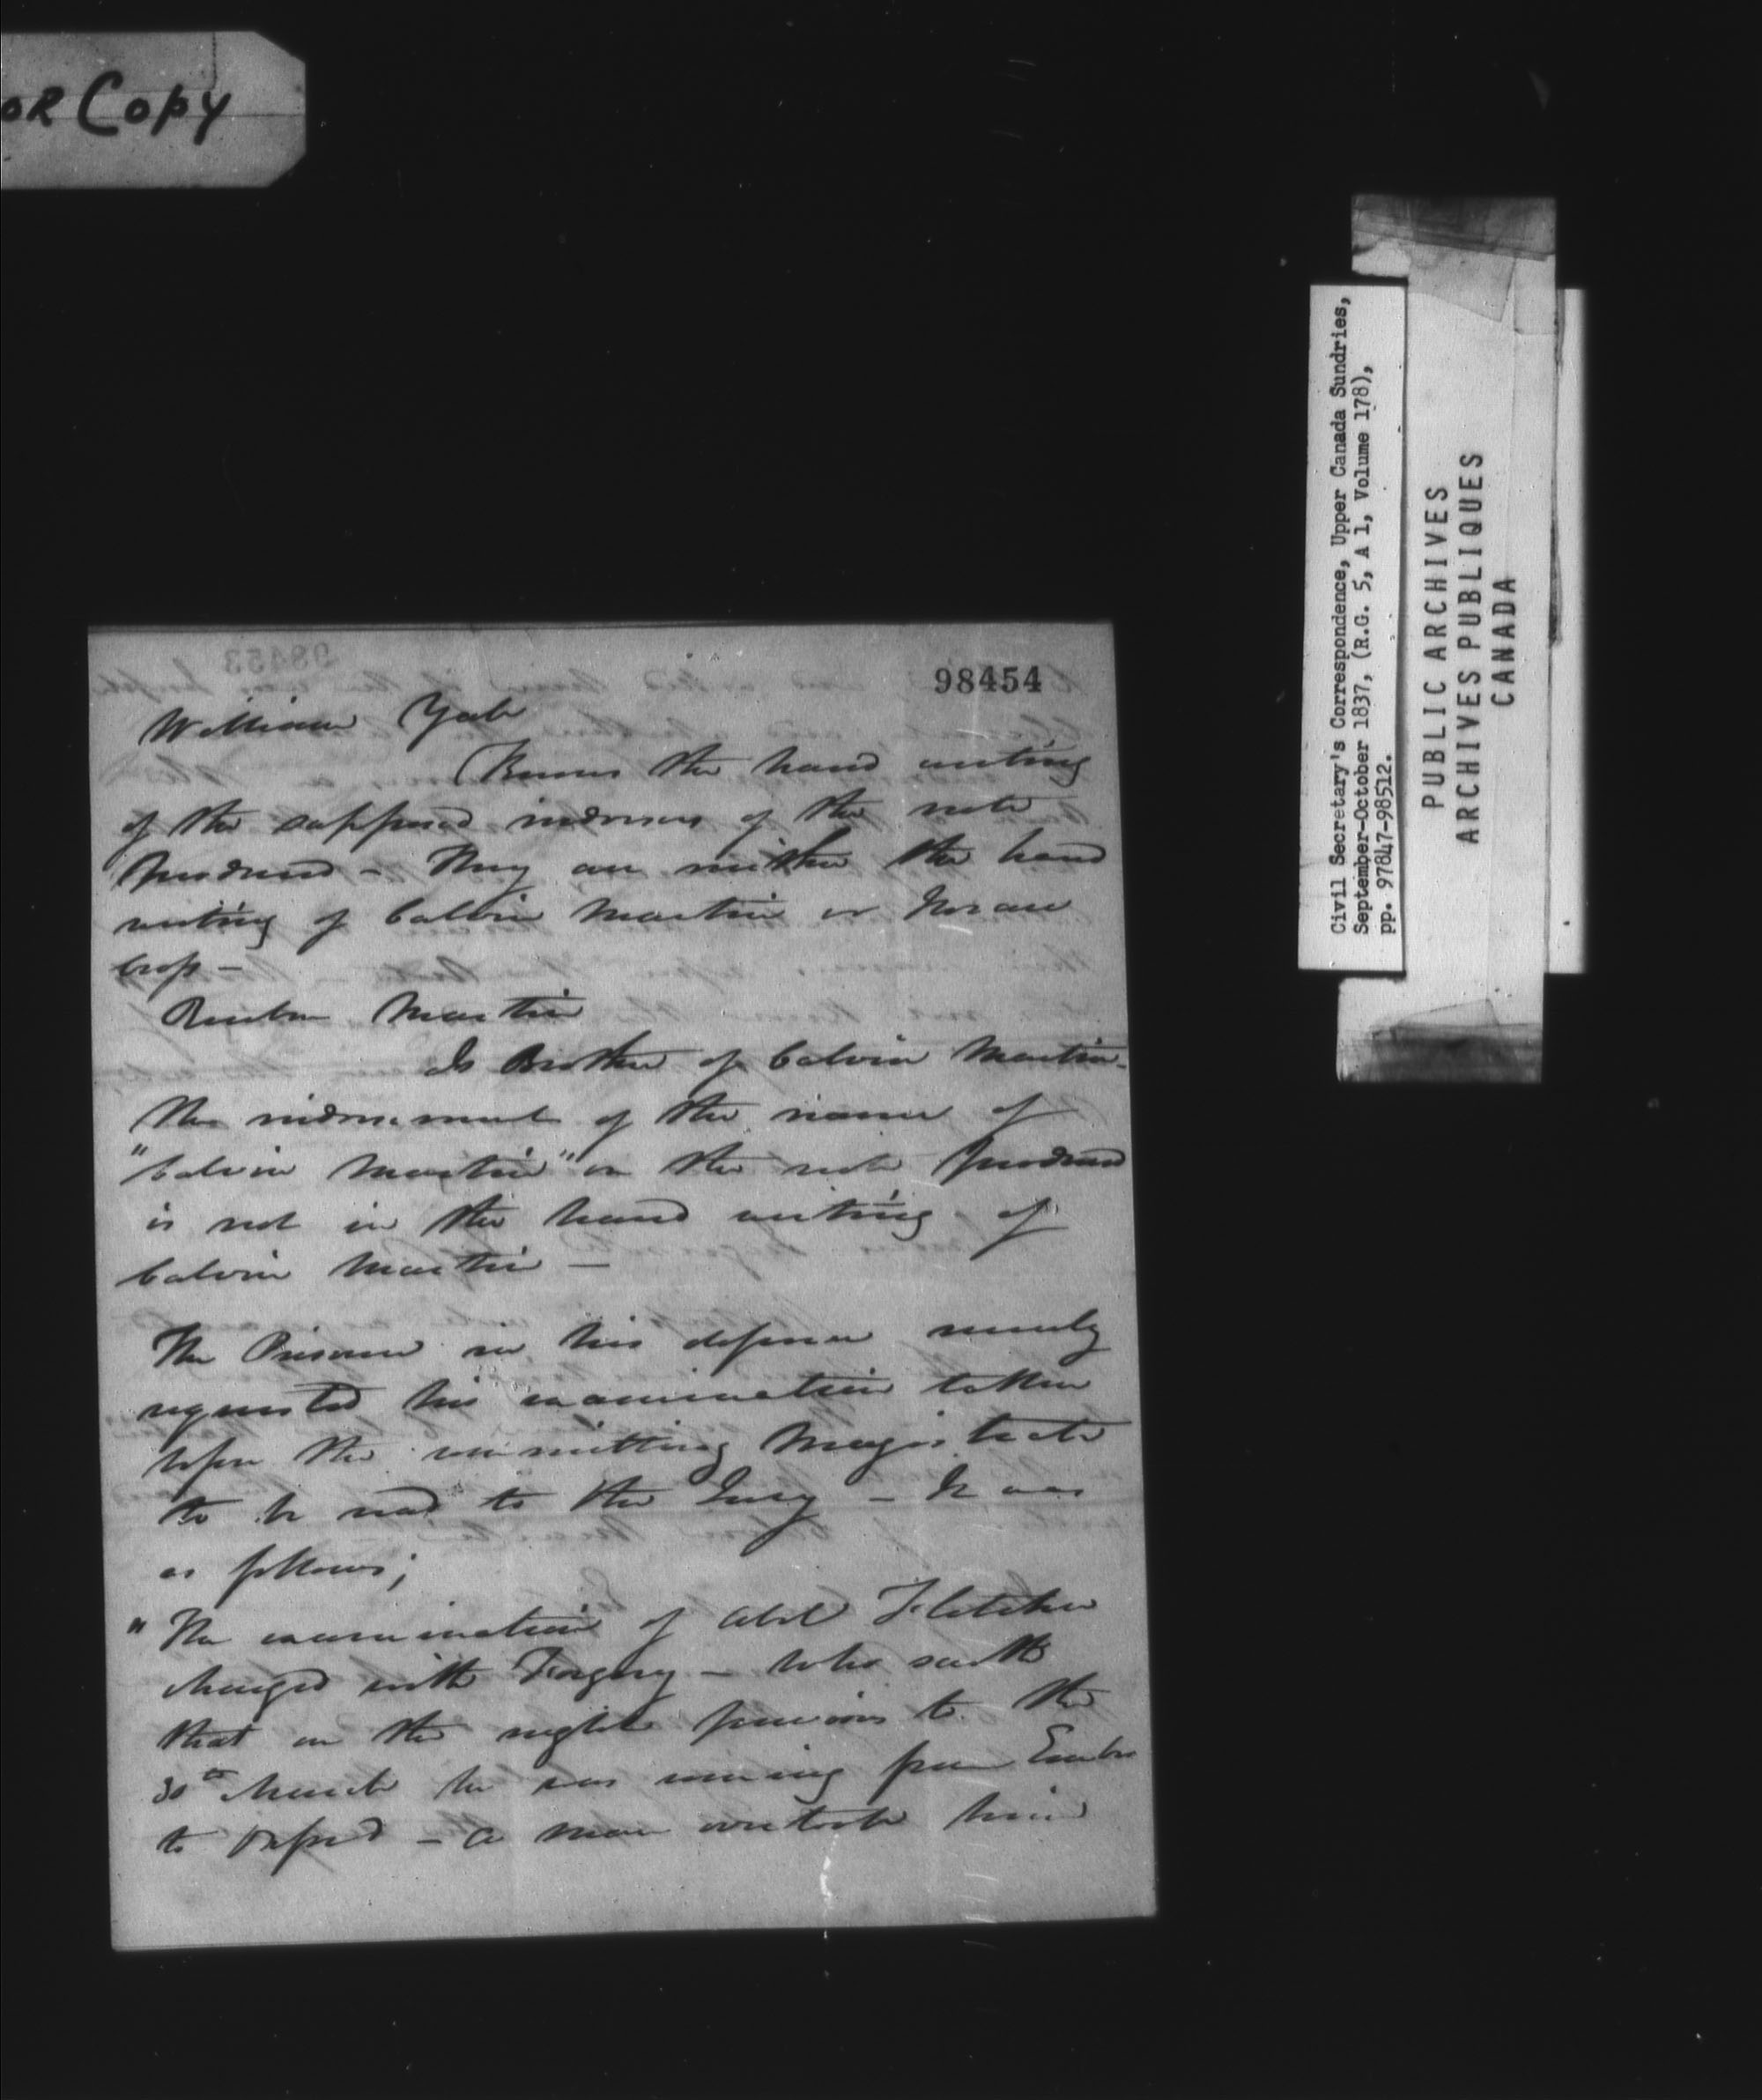 OR Copy
98454
William Yale
Knows the hand writing
of the supposed indorsers of the note
produced - They are neither the hand
writing of Calvin Martin or Horace
Crofs -
Reuben Martin
Is Brother of Calvin Martin -
The indorsement of the name of
"Calvin Martin" on the note produced
is not in the hand writing of
Calvin Martin -
The Prisoner in his defence merely
requested his examination taken
before the committing Magistrate
to be read to the Jury - It was
as follows;
"The examination of Abel Fletcher
charged with Forgery - who saith
that on the night previous to the
30th March he was coming from Embro
to Oxford - a man overtook him
Civil Secretary's Correspondence, Upper Canada Sundries,
September-October 1837, (R.G. 5, A 1, Volume 178),
pp. 97847-98512.
PUBLIC ARCHIVES
ARCHIVES PUBLIQUES
CANADA